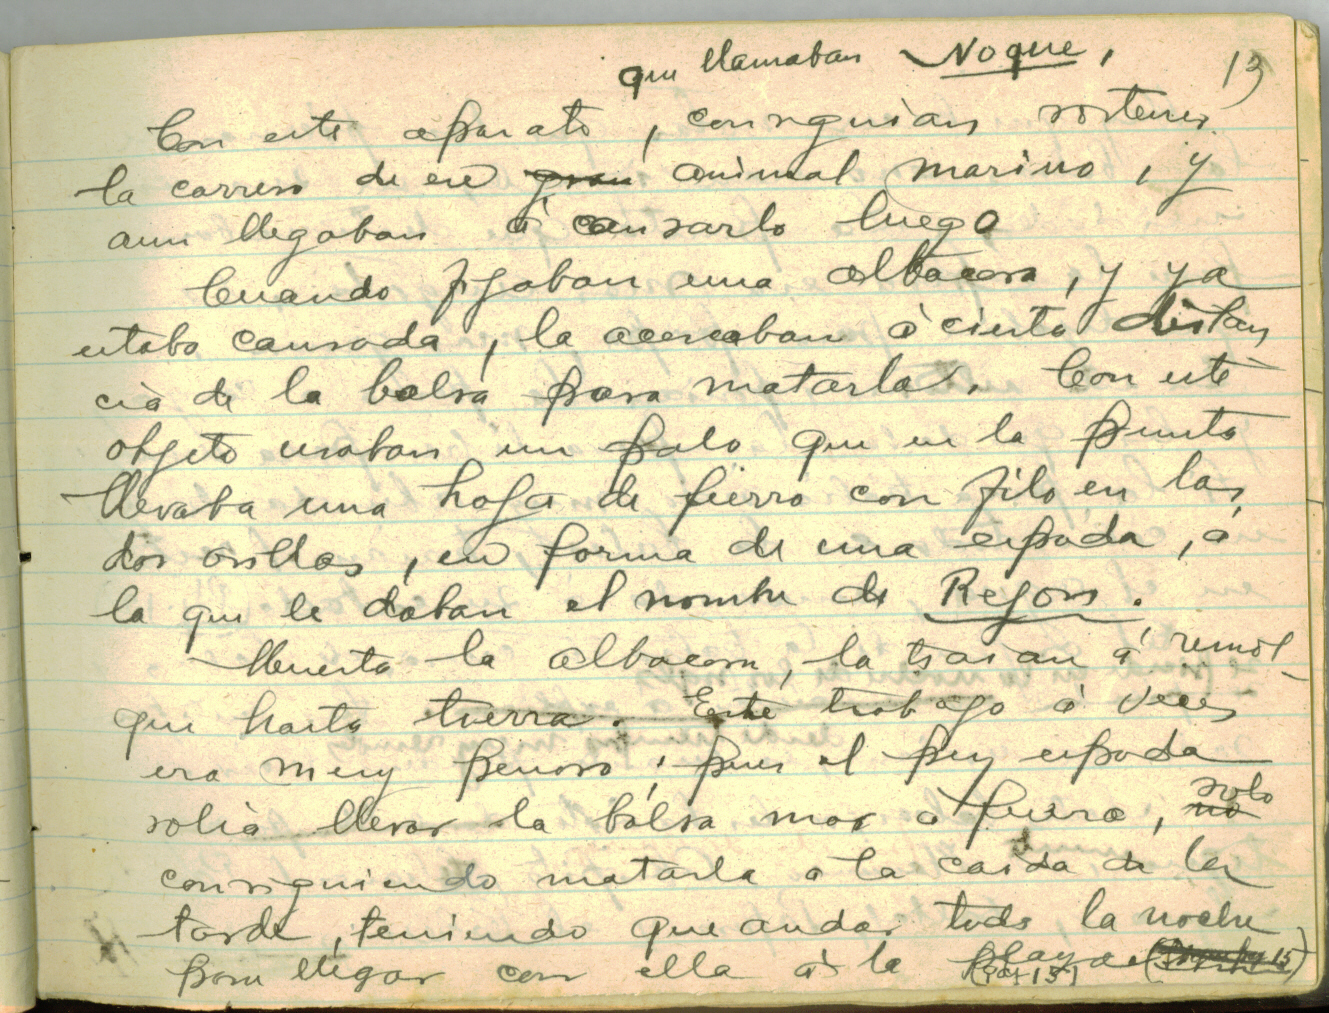 que llamaban Noque,
13
Con este aparato, conseguian sostener
la carrera de ese gran animal marino, y
aun llegaban á cansarlo luego
Cuando fijaban una albacora, y ya
estaba cansada, la acercaban á cierta distan
cia de la balsa para matarla. Con este
objeto usaban un palo que en la punta
llevaba una hoja de fierro con filo en las
dos orillas, en forma de una espada, á
la que le daban el nombre de Rejon.
Muerta la albacora, la traian á remol
que hasta tierra. Este trabajo á veces
era muy penoso; pues el pez espada
solia llevar la balsa mar á fuera, no solo
consiguiendo matarla á la caida de la
tarde, teniendo que andar toda la noche
para llegar con ella á la playa (Sigue pag 15)
(pag 15)